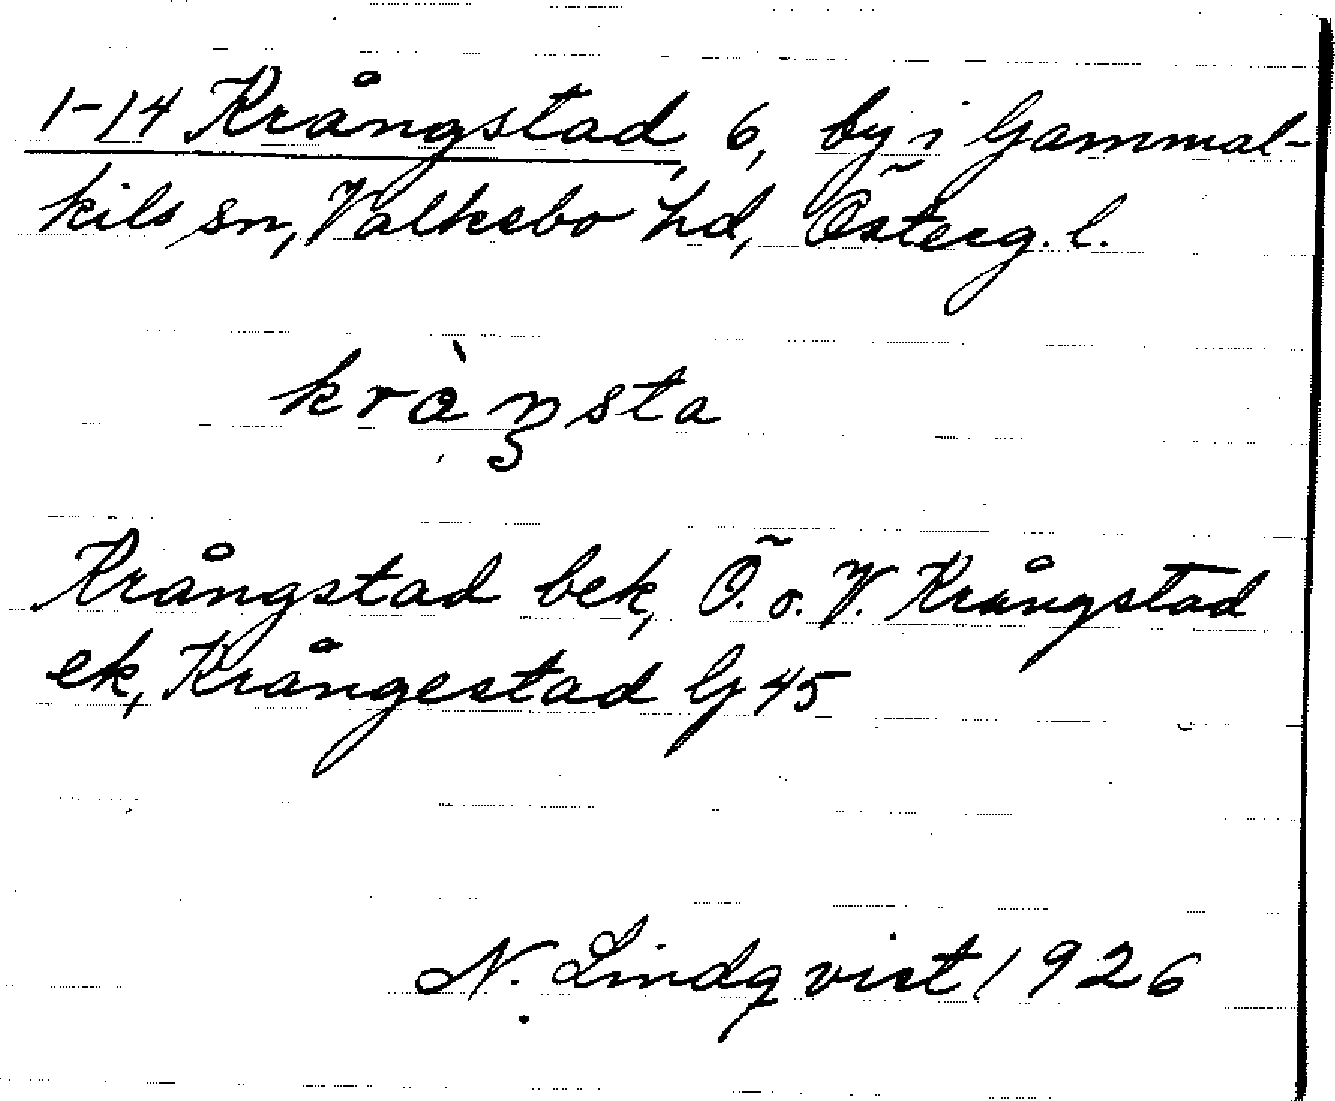 1-14 Krångstad, 6, by i Gammal-
kils sn, Valkebo hd, Österg. l.
krån̡sta
Krångstad bek, Ö. o. V. Krångstad
ek, Krångestad G 45
N. Lindqvist 1926